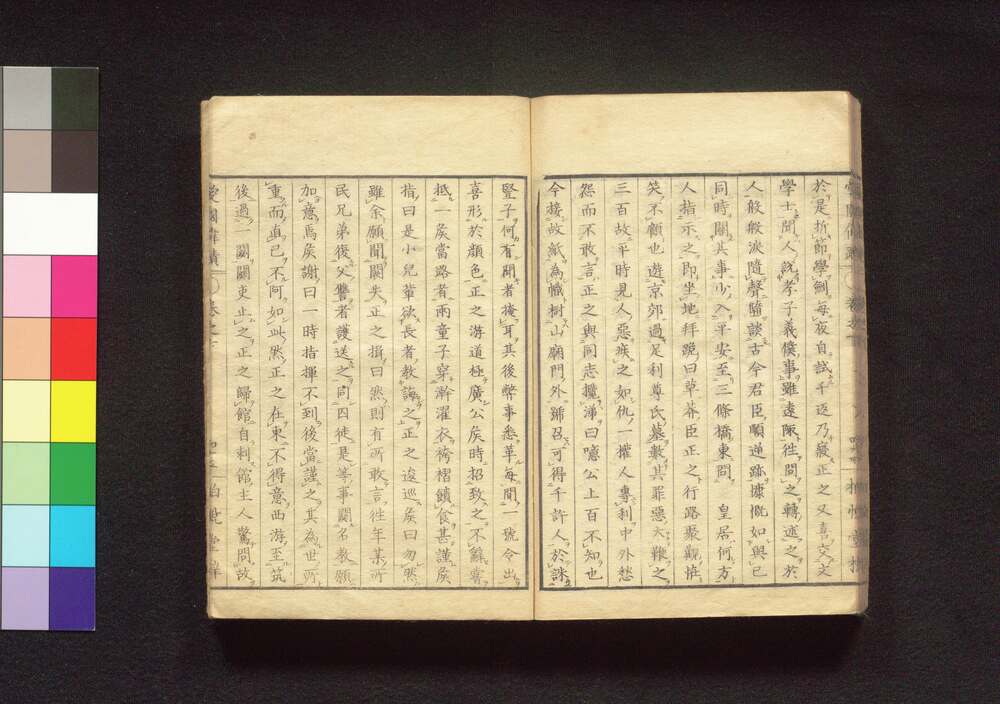 於是折節學劍每夜自試千遍乃寢正之又喜交文
學士聞人說孝子義僕事雖遠陬往問之轉述之於
人般般淚隨聲隨談古今君臣順逆跡慷慨如與己
同時關其事少入平安至三條橋東問 皇居何方
人指示之即坐地拜跪曰草莽臣正之行路聚觀怪
笑不顧也遊京郊過足利尊氏墓數其罪惡大鞭之
三百故平時見人惡疾之如仇一權人專利中外愁
怨而不敢言正之與同志攬涕曰噫公上百不知也
今接故紙為幟樹山廟門外號召可得千許人於誅
豎子何有聞者掩耳其後幣事悉革每聞一號令出
喜形於顏色正之游道極廣公侯時招致之不辭嘗
抵一侯當路者兩童子穿澣濯衣袴褶饋食甚謹侯
指曰是小兒輩欲長者教誨之正之逡巡侯曰勿然
雖余願聞闕失正之揖曰然則有所敢言往年某所
民兄弟復父讐者護送之同囚徒是等事關名教願
加意焉侯謝曰一時指揮不到後當謹之其為世所
重而直己不阿如此然正之在東不得意西游至筑
後過一關關吏止之正之歸館自刺館主人驚問故